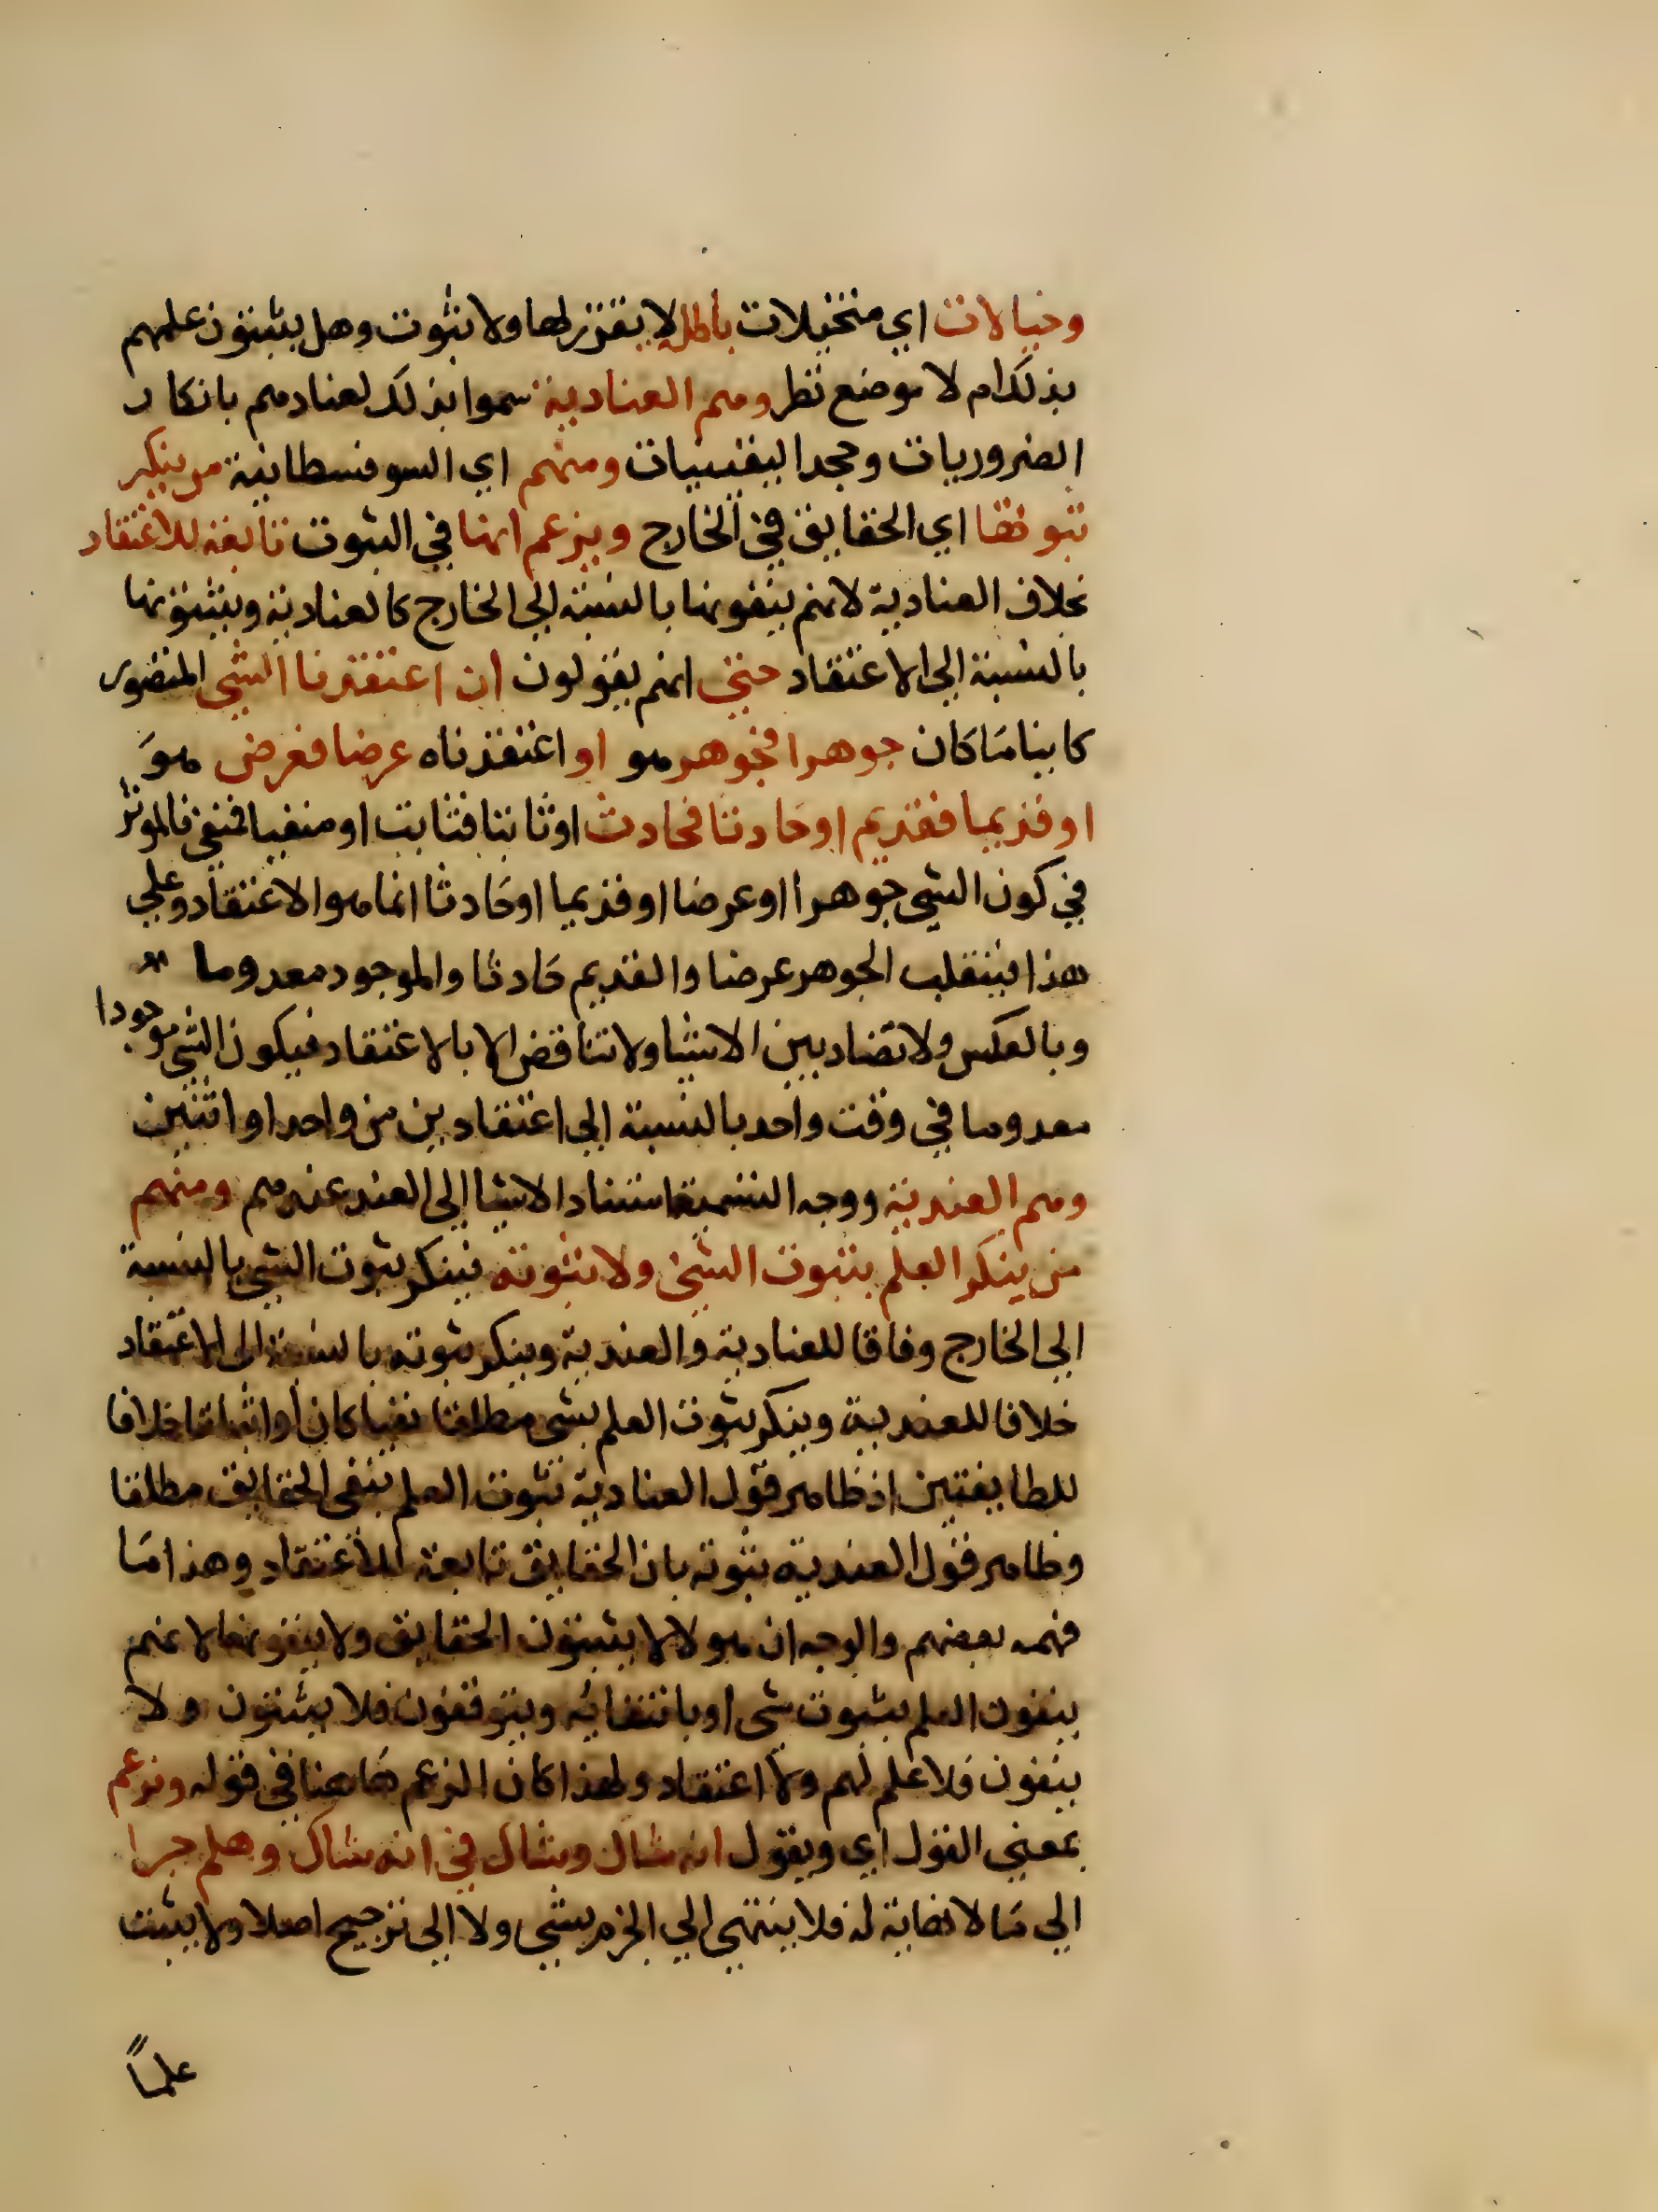 وخيالات اي متخيلات باطلة لا تقرر لها ولا ثبوت وهل يثبتون علمهم
بذلك ام لا موضع نظر وهم العنادية سموا بذلك لعنادهم بانكار
الضروريات وجحد اليقينيات ومنهم اي السوفسطائية من ينكر
ثبوتها اي الحقايق في الخارج ويزعم انها في الثبوت تابعة للاعتقاد
بخلاف العنادية لانهم ينفونها بالنسبة الي الخارج كالعنادية ويثبتونها
بالنسبة الي الاعتقاد حتي انهم يقولون ان اعتقدنا الشي المتصور
كاينا ما كان جوهرا فجوهر هو او اعتقدناه عرضا فعرض هو
او قديما فقديم او حادثا فحادث او ثابتا فثابت او منفيا فمنفي فالموثر
في كون الشي جوهرا او عرضا او قديما او حادثا انما هو الاعتقاد وعلي
هذا فينقلب الجوهر عرضا والقديم حادثا والموجود معدوما
وبالعكس ولا تضاد بين الاشيا ولا تناقض الا بالاعتقاد فيكون الشي موجودا
معدوما في وقت واحد بالنسبة الي اعتقادين من واحد او اثنين
وهم العندية ووجه التسمية استناد الاشيا الي العند عندهم ومنهم
من ينكر العلم بثبوت الشي ولا ثبوته فينكر ثبوت الشي بالنسبة
الي الخارج وفاقا للعنادية والعندية وينكر ثبوته بالنسبة الي الاعتقاد
خلافا للعندية وينكر ثبوت العلم بشي مطلقا نفيا كان او اثباتا خلافا
للطايفتين اذ ظاهر قول العنادية ثبوت العلم بنفي الحقايق مطلقا
وظاهر قول العندية ثبوته بان الحقايق تابعة للاعتقاد وهذا ما
فهمه بعضهم والوجه ان هولا لا يثبتون الحقايق ولا ينفونها لانهم
ينفون العلم بثبوت شي او بانتفايه ويتوقفون فلا يثبتون ولا
ينفون فلا علم لهم ولا اعتقاد ولهذا كان الزعم هاهنا في قوله ويزعم
بمعني القول اي ويقول انه شاك وشاك في انه شاك وهلم جرا
الي ما لا نهاية له فلا ينتهي الي الجزم بشي ولا الي ترجيح اصلا ولا يثبت
علماً